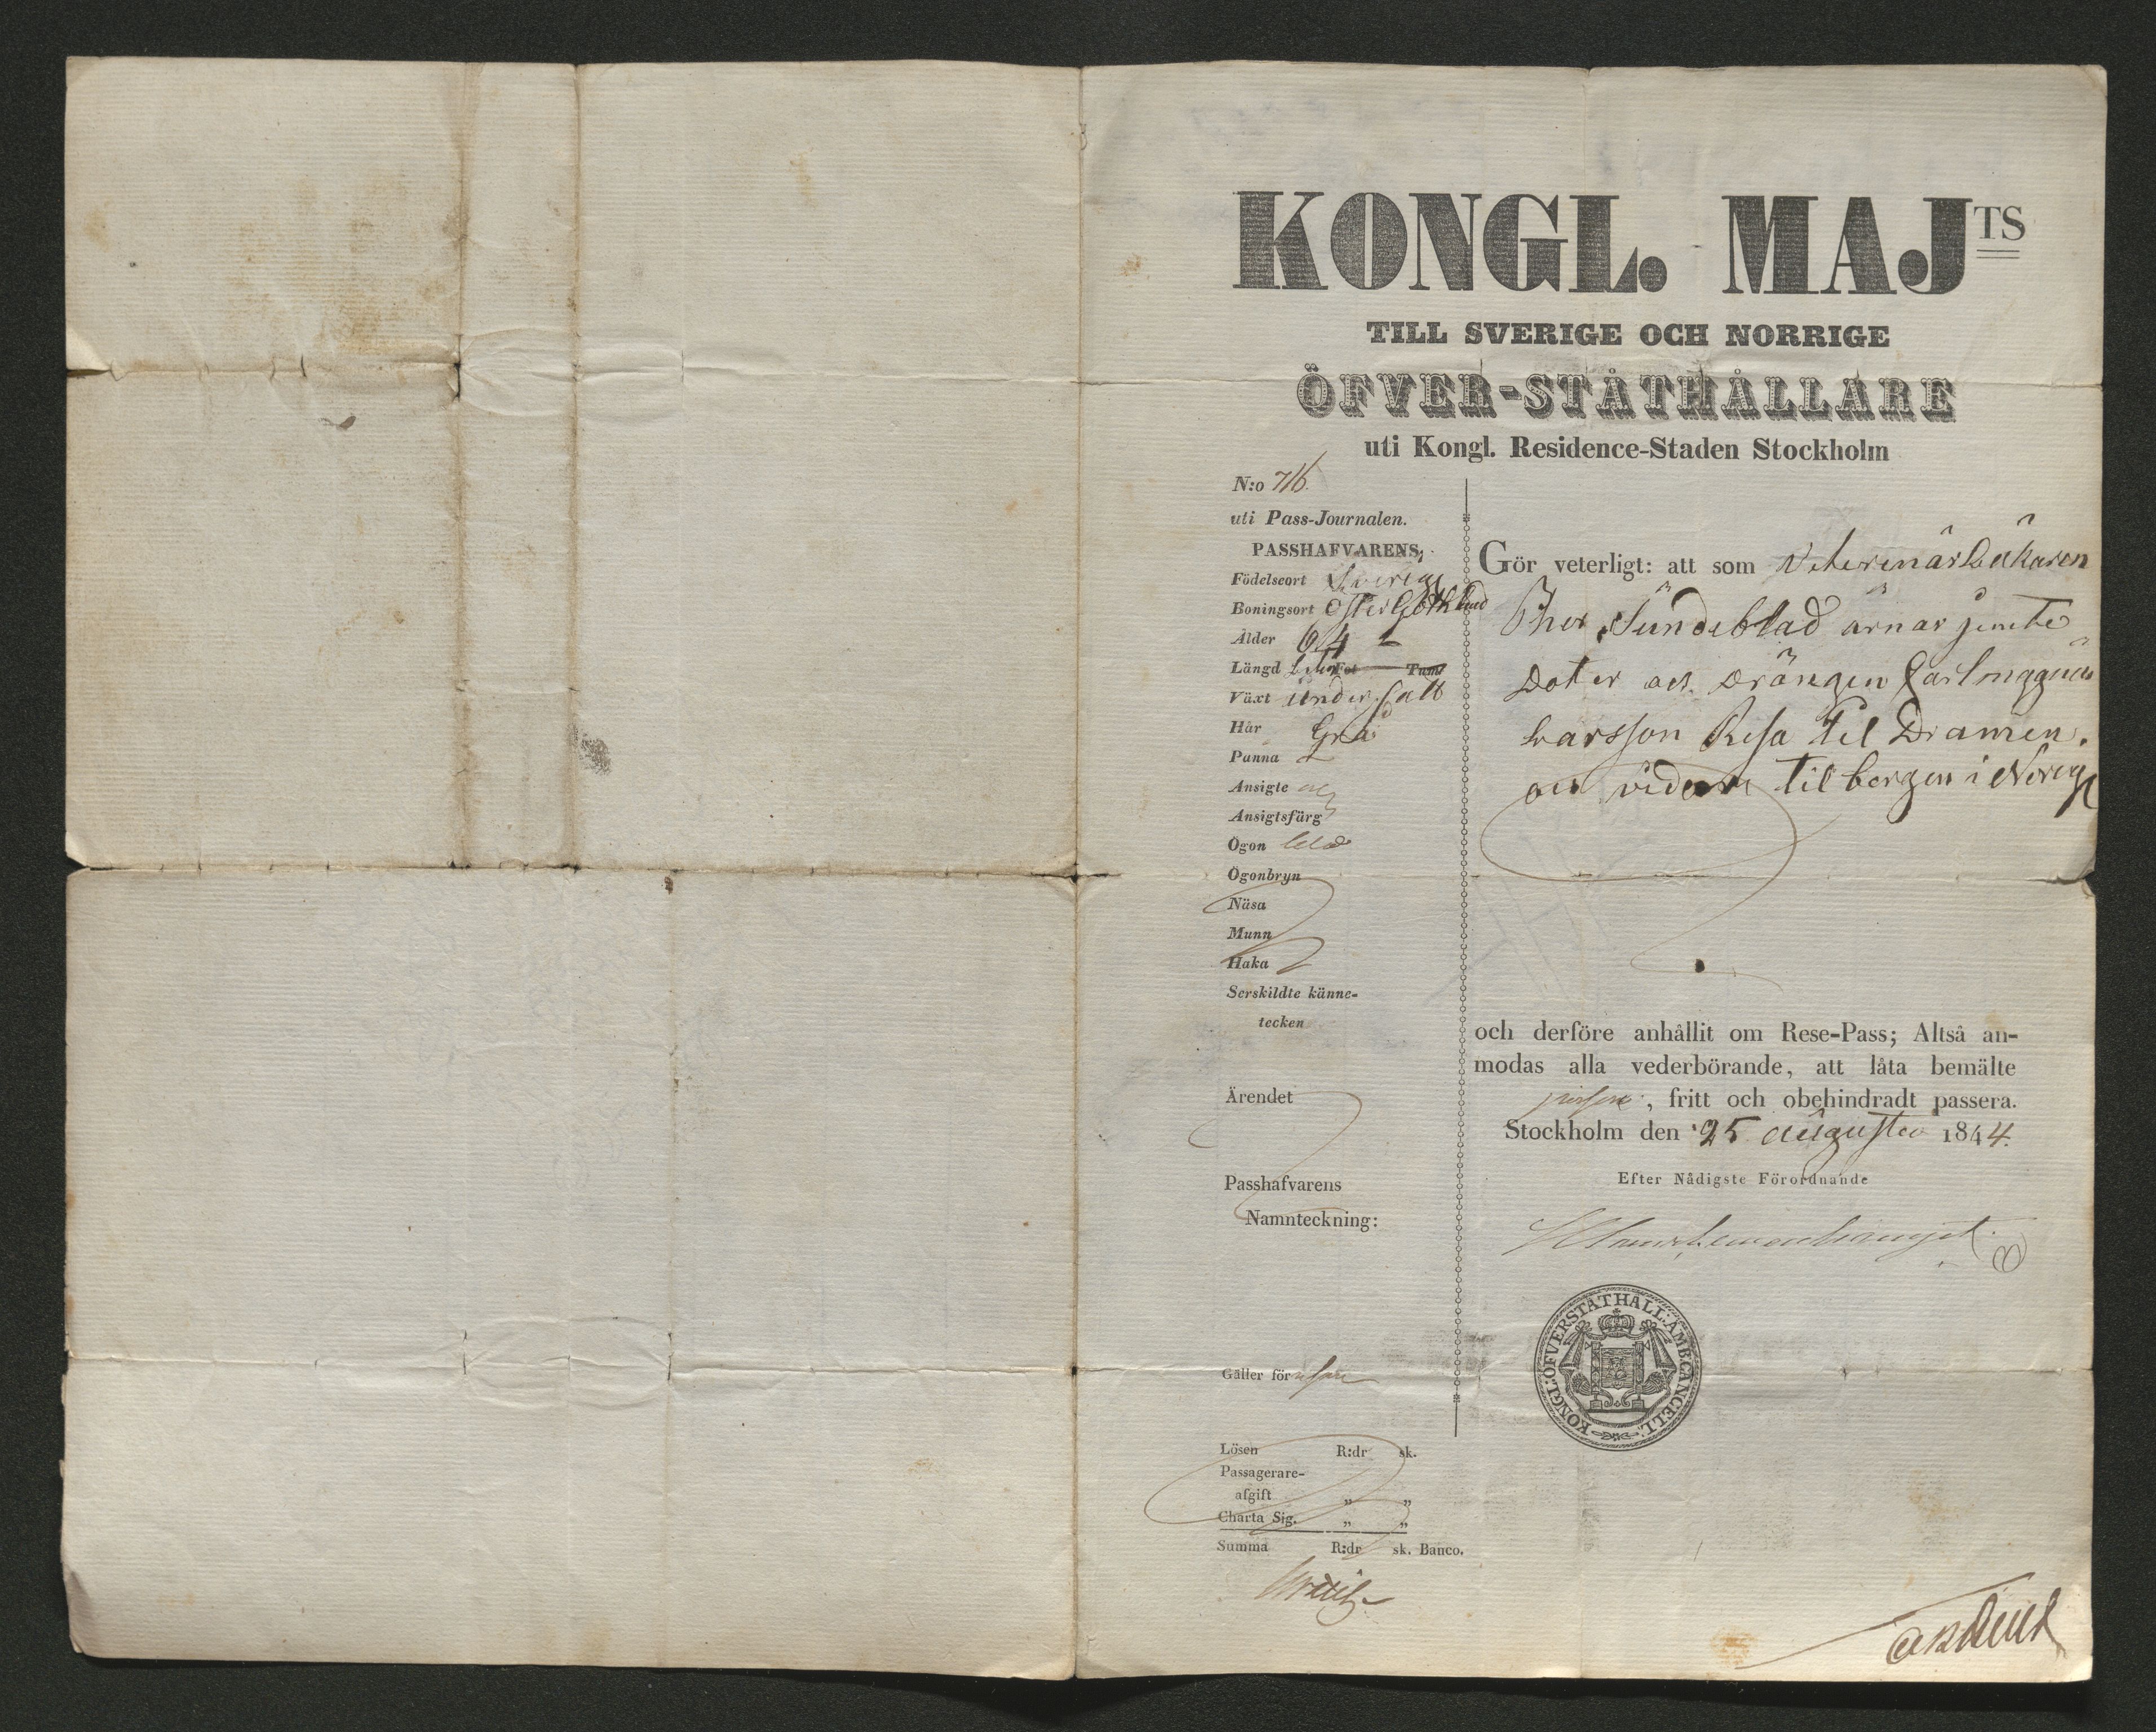 KONGL. MAJTS
TILL SVERIGE OCH NORRIGE
ÖFVER-STÅTHÅLLARE
uti Kongl. Residence-Staden Stockholm
N:o 716.
uti Pass-Journalen.
PASSHAFVARENS,
Födelseort Sverige
Boningsort Öster Göthland
Ålder 64
Längd Fot Tum
Växt undersatt
Hår Grå
Panna
Ansigte
Ansigtsfärg
Ögon blå
Ögonbryn
Näsa
Munn
Haka
Serskildte känne-
tecken
Ärendet
Passhafvarens
Namnteckning:
Gäller för
Lösen R:dr sk.
Passagerare-
afgift „ „
Charta Sig. „ „
Summa R:dr sk. Banco.
Gör veterligt: att som Veterinär Läkaren
Pher Sundeblad ärnar jemte
Doter och Drängen Carl
Larsson Resa til Dramen.
och vidare til bergen i Norige
och derföre anhållit om Rese-Pass; Altså an-
modas alla vederbörande, att låta bemälte
, fritt och obehindradt passera.
Stockholm den 25 Augusti 1844.
Efter Nådigste Förordnande
KONGL: ÖFVERSTATHALL: AMB: CANCELI: